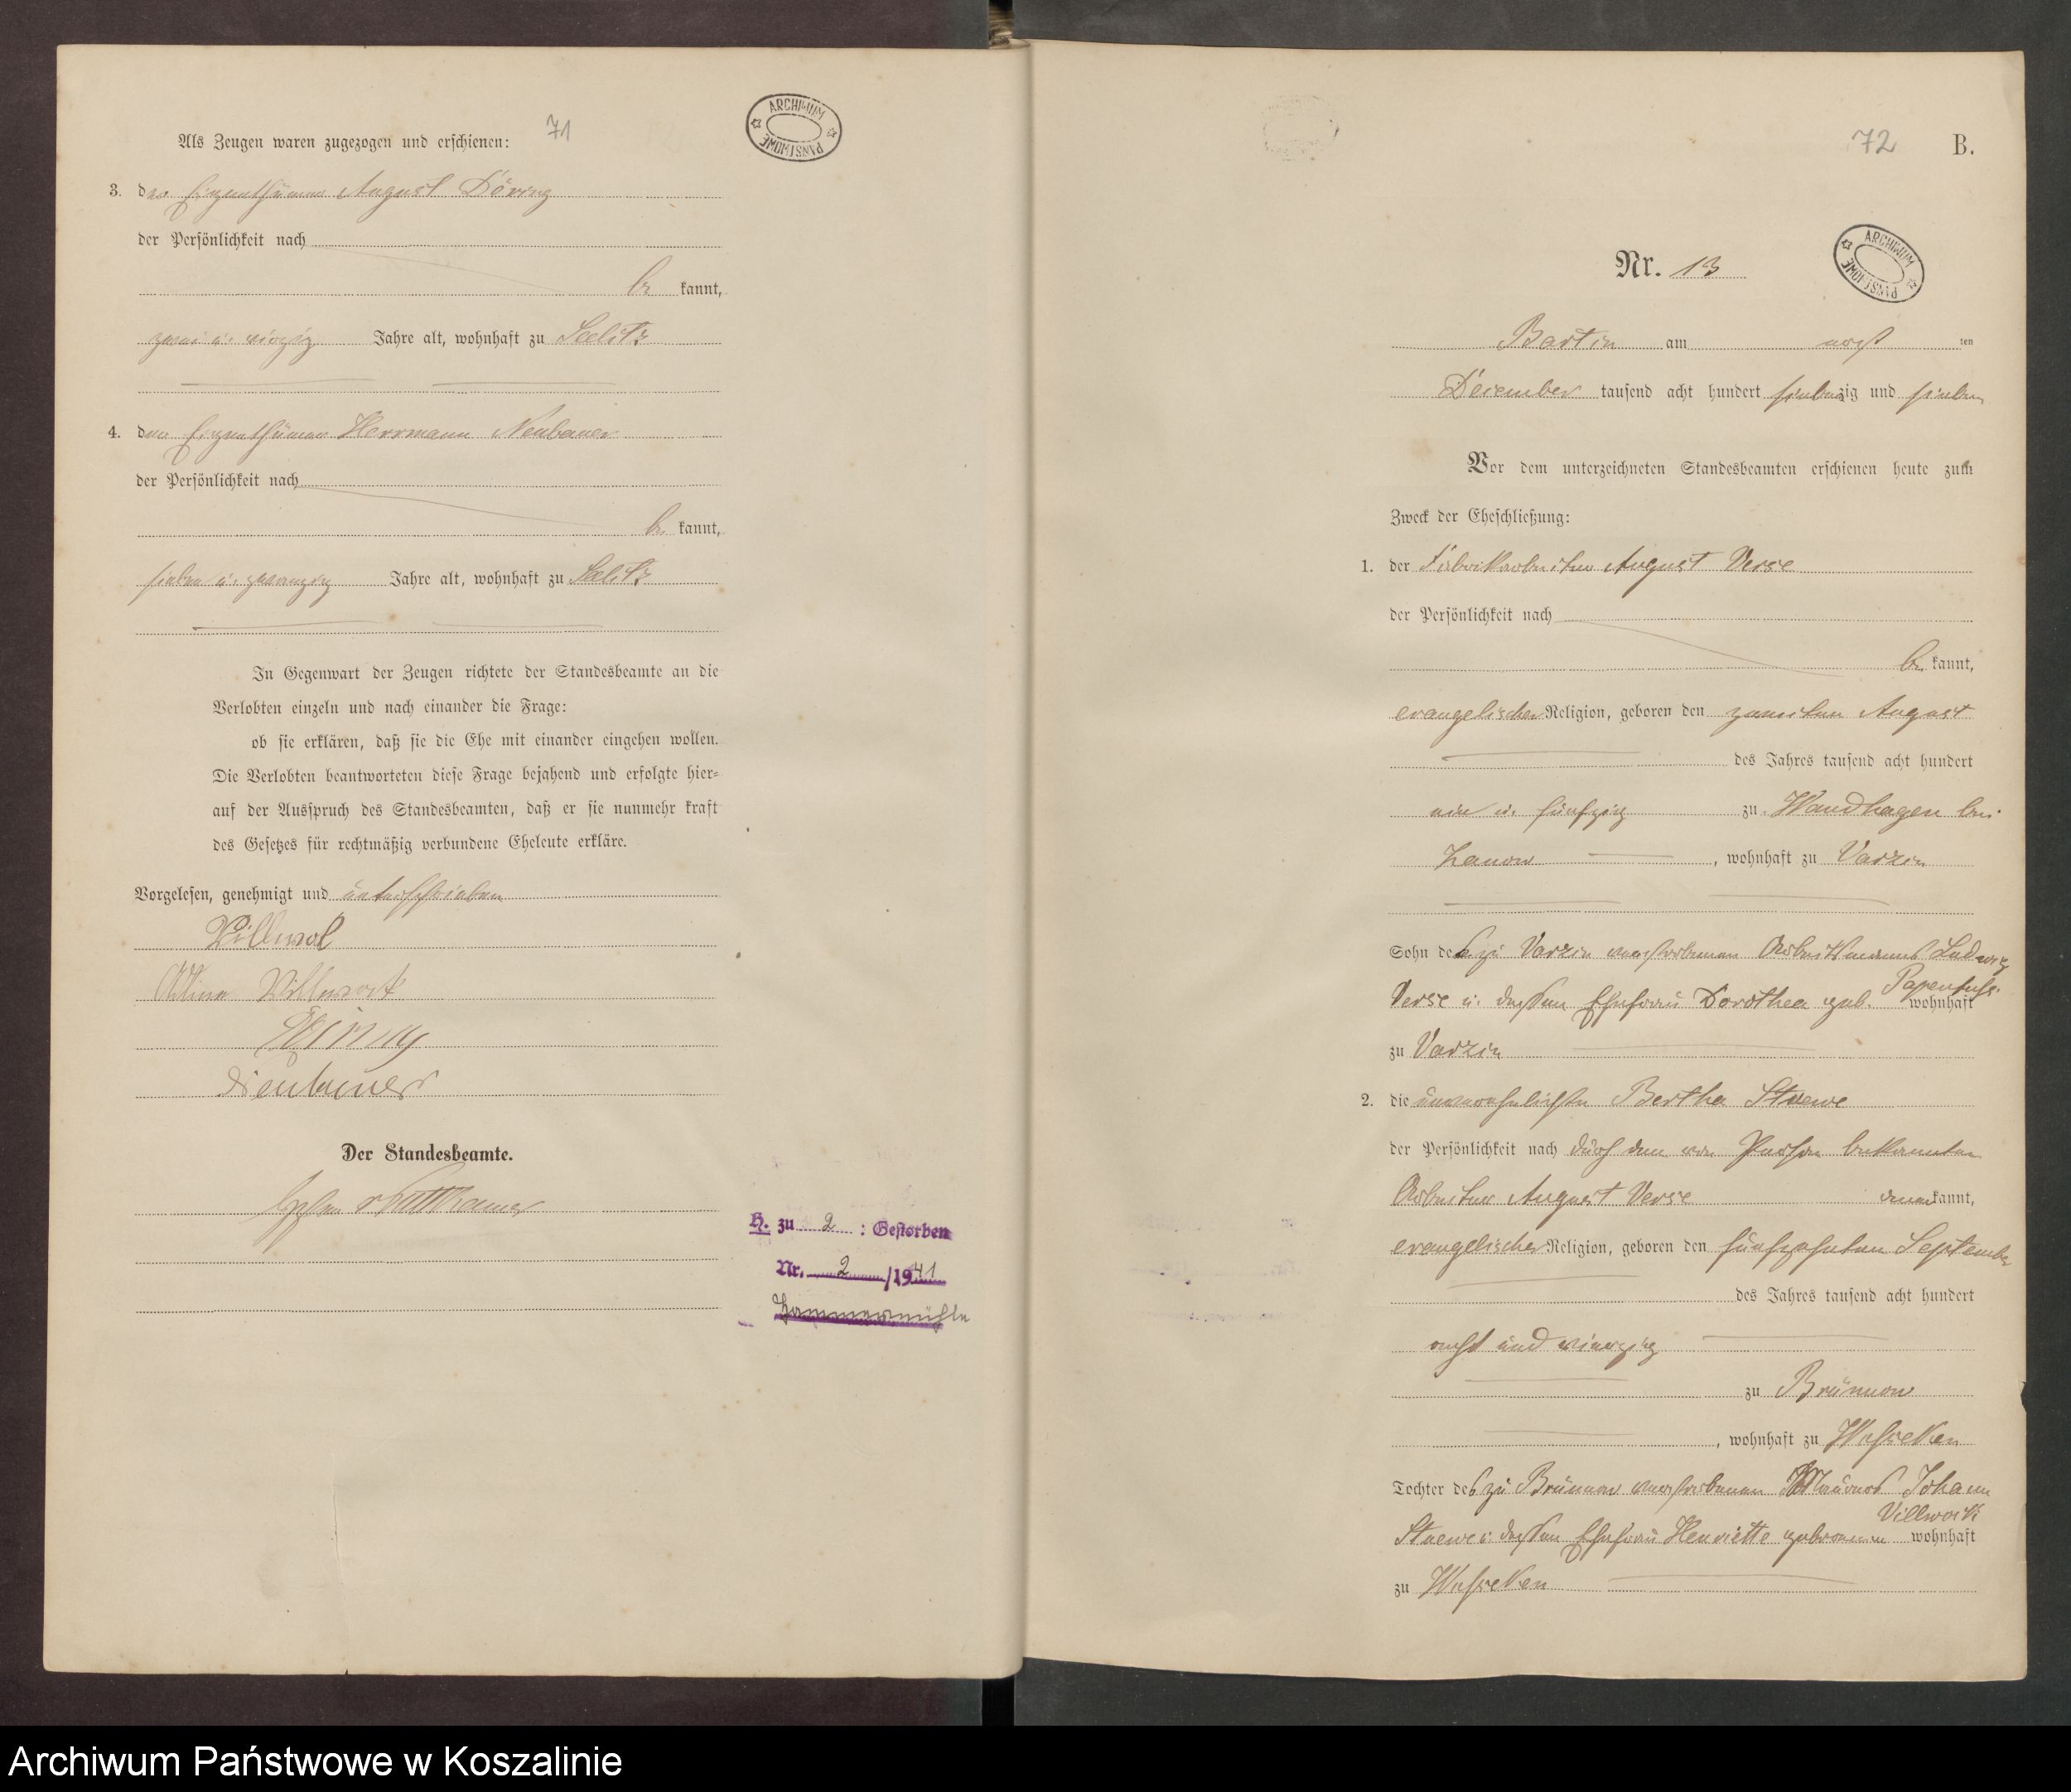 71
ARCHIWUM PAŃSTWOWE
Als Zeugen waren zugezogen und erschienen:
3. der Eigenthümer August Döring
der Persönlichkeit nach
be kannt,
zwei u. vierzig Jahre alt, wohnhaft zu Sellitz
4. der Eigenthümer Herrmann Neubauer
der Persönlichkeit nach
be kannt,
sieben u. zwanzig Jahre alt, wohnhaft zu Sellitz
In Gegenwart der Zeugen richtete der Standesbeamte an die
Verlobten einzeln und nach einander die Frage:
ob sie erklären, daß sie die Ehe mit einander eingehen wollen.
Die Verlobten beantworteten diese Frage bejahend und erfolgte hier-
auf der Ausspruch des Standesbeamten, daß er sie nunmehr kraft
des Gesetzes für rechtmäßig verbundene Eheleute erkläre.
Vorgelesen, genehmigt und unterschrieben
Villwock
Villwock
Döring
Neubauer
Der Standesbeamte.
v Puttkamer
H. zu 2 : Gestorben
Nr. 2 /1941
Hammermühle
72 B.
ARCHIWUM PAŃSTWOWE
Nr. 13
Bartin am acht ten
December tausend acht hundert siebenzig und sieben
Vor dem unterzeichneten Standesbeamten erschienen heute zum
Zweck der Eheschließung:
1. der Fabrikarbeiter August Verse
der Persönlichkeit nach
be kannt,
evangelischer Religion, geboren den zweiten August
des Jahres tausend acht hundert
ein u. fünfzig zu Wandhagen bei
Zanow, wohnhaft zu Varzin
Sohn des zu Varzin verstorbenen Arbeitsmanns Ludwig
Verse u. dessen Ehefrau Dorothea geb. Papenfuß wohnhaft
zu Varzin
2. die unverehelichte Bertha Stuewe
der Persönlichkeit nach durch den von Person bekannten
Arbeiter August Verse anerkannt,
evangelischer Religion, geboren den fünfzehnten September
des Jahres tausend acht hundert
acht und vierzig
zu Brünnow
, wohnhaft zu Wussecken
Tochter des zu Brünnow verstorbenen Maurers Johann
Stuewe u. dessen Ehefrau Henriette geborenen Villwock wohnhaft
zu Wussecken
Archiwum Państwowe w Koszalinie